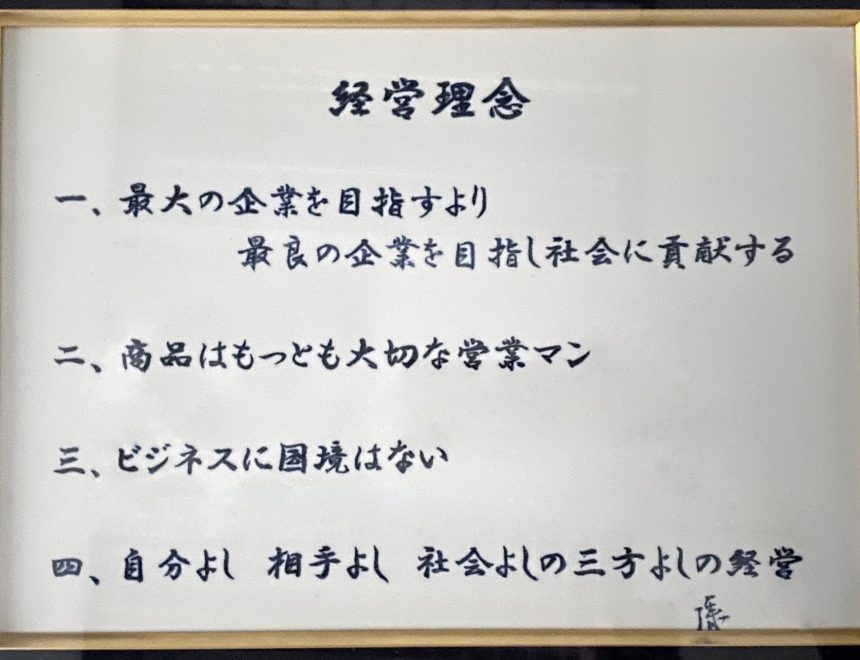 経営理念
一、最大の企業を目指すより
最良の企業を目指し社会に貢献する
二、商品はもっとも大切な営業マン
三、ビジネスに国境はない
四、自分よし 相手よし 社会よしの三方よしの経営